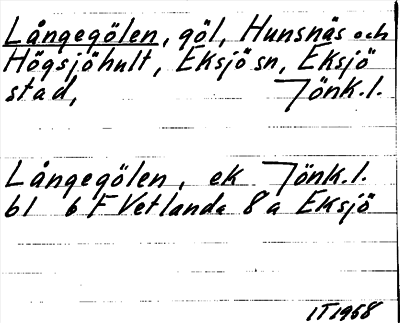 Långegölen, göl, Hunsnäs och
Högsjöhult, Eksjö sn, Eksjö
stad, Jönk.l.
Långegölen, ek Jönk.l.
bl 6 F Vetlanda 8a Eksjö
IT1958